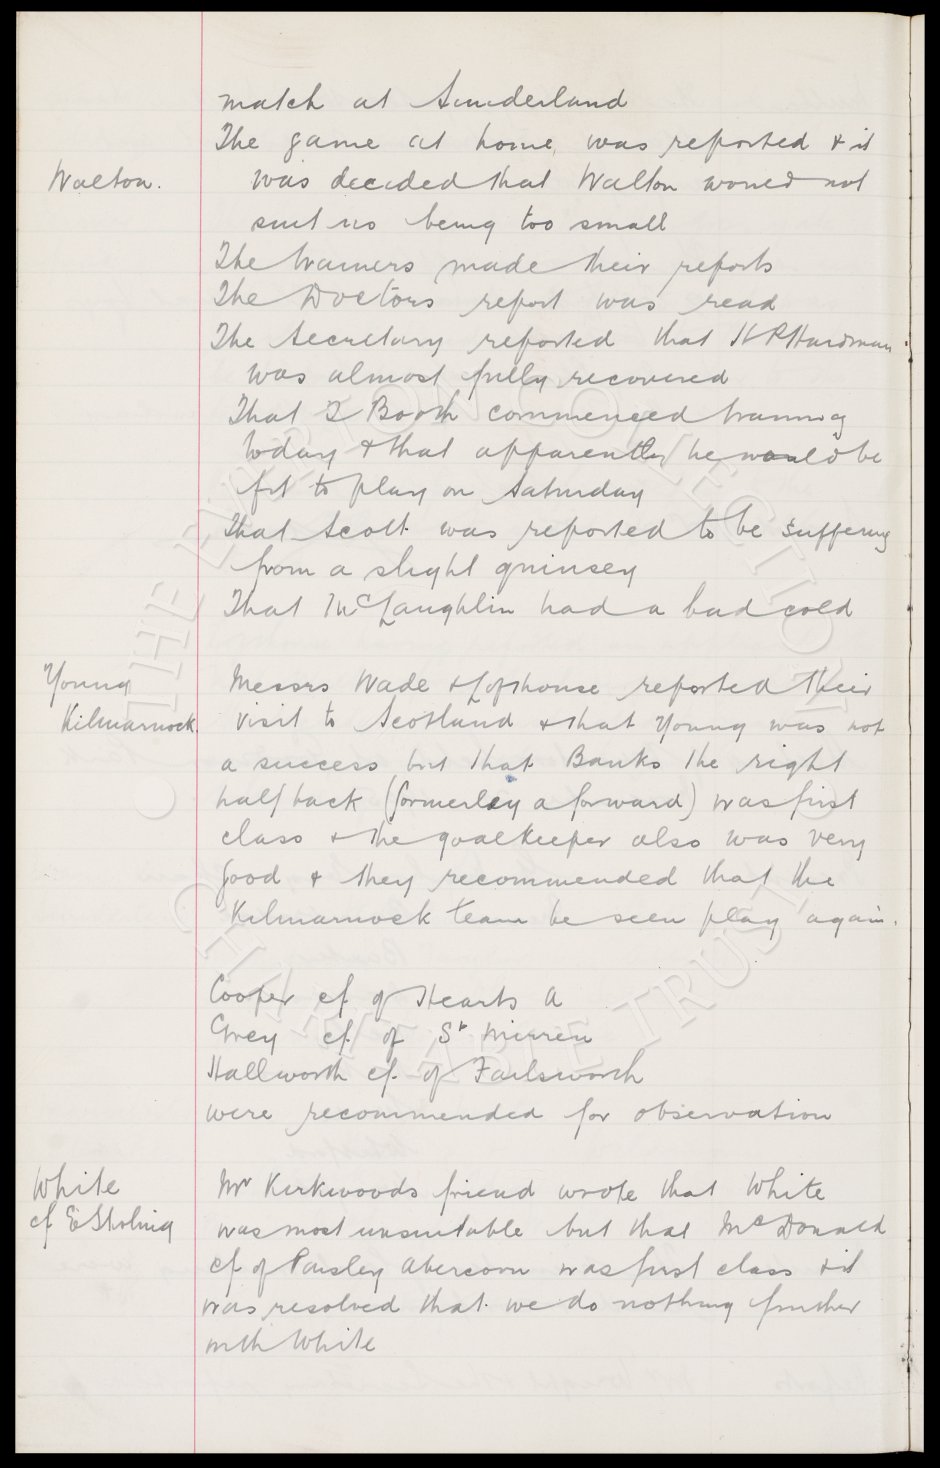 match at Sunderland
The game at home was reported & it
Walton.
was decided that Walton would not
suit us being too small
The trainers made their reports
The Doctors report was read
The Secretary reported that H P Hardman
was almost fully recovered
That T Booth commenced training
today & that apparently he would be
fit to play on Saturday
That Scott was reported to be suffering
from a slight quinsey
That McLaughlin had a bad cold
Young
Kilmarnock.
Messrs Wade & Lofthouse reported their
visit to Scotland & that Young was not
a success but that Banks the right
half back (formerley a forward) was first
class & the goalkeeper also was very
good & they recommended that the
Kilmarnock team be seen play again.
Cooper cf of Hearts A
Grey cf. of St Mirren
Hallworth cf. of Failsworth
were recommended for observation
White
cf E Stirling
Mr Kirkwoods friend wrote that White
was most unsuitable but that McDonald
cf. of Paisley Abercorn was first class & it
was resolved that we do nothing further
with White
THE EVERTON COLLECTION
CHARITABLE TRUST